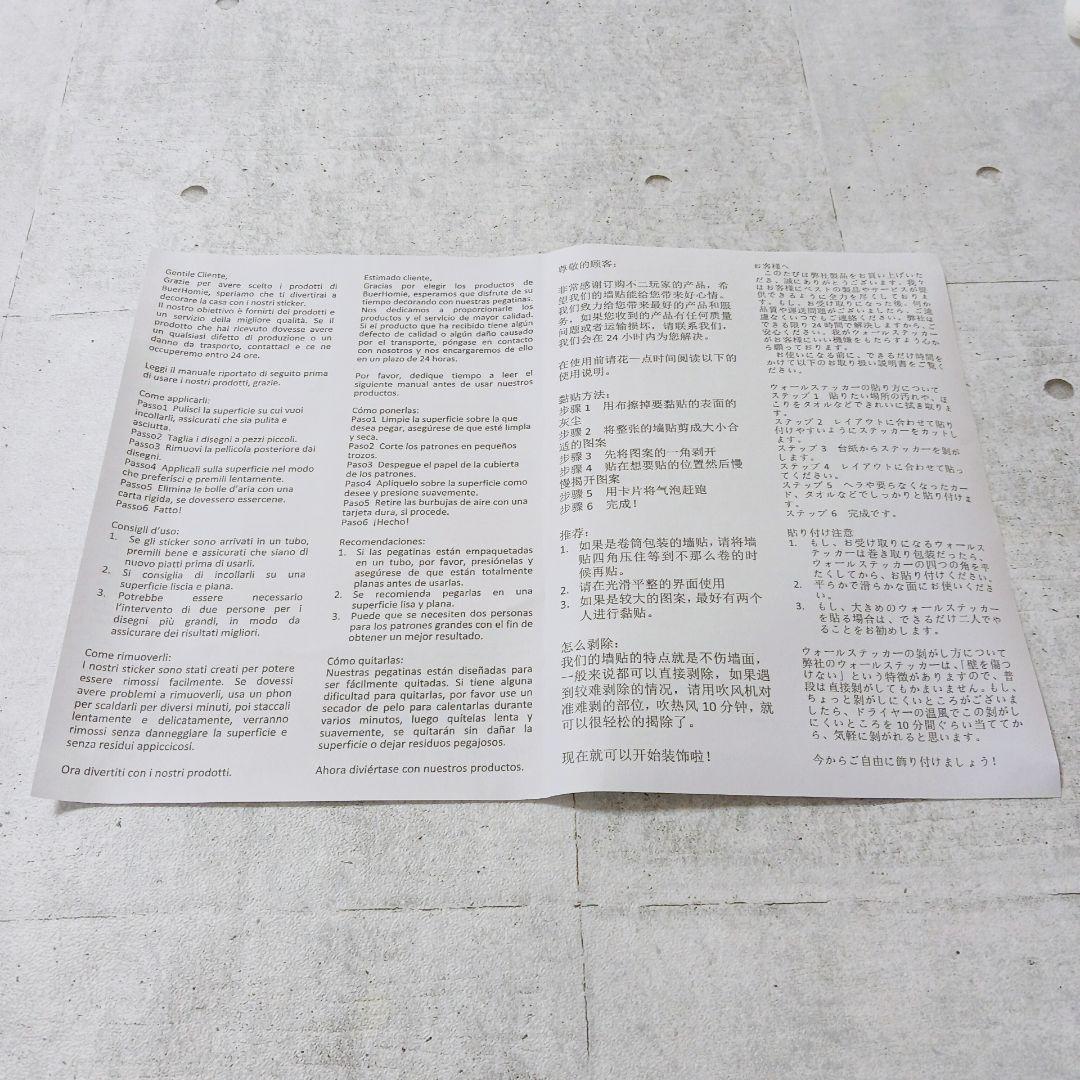 Gentile Cliente,
Grazie per avere scelto i prodotti di
BuerHomie, speriamo che ti divertirai a
decorare la casa con i nostri sticker.
Il nostro obiettivo è fornirti dei prodotti e
un servizio della migliore qualità. Se il
prodotto che hai ricevuto dovesse avere
un qualsiasi difetto di produzione o un
danno da trasporto, contattaci e ce ne
occuperemo entro 24 ore.
Leggi il manuale riportato di seguito prima
di usare i nostri prodotti, grazie.
Come applicarli:
Passo1 Pulisci la superficie su cui vuoi
incollarli, assicurati che sia pulita e
asciutta.
Passo2 Taglia i disegni a pezzi piccoli.
Passo3 Rimuovi la pellicola posteriore dai
disegni.
Passo4 Applicali sulla superficie nel modo
che preferisci e premili lentamente.
Passo5 Elimina le bolle d'aria con una
carta rigida, se dovessero essercene.
Passo6 Fatto!
Consigli d'uso:
1. Se gli sticker sono arrivati in un tubo,
premili bene e assicurati che siano di
nuovo piatti prima di usarli.
2. Si consiglia di incollarli su una
superficie liscia e piana.
3. Potrebbe essere necessario
l'intervento di due persone per i
disegni più grandi, in modo da
assicurare dei risultati migliori.
Come rimuoverli:
I nostri sticker sono stati creati per potere
essere rimossi facilmente. Se dovessi
avere problemi a rimuoverli, usa un phon
per scaldarli per diversi minuti, poi staccali
lentamente e delicatamente, verranno
rimossi senza danneggiare la superficie e
senza residui appiccicosi.
Ora divertiti con i nostri prodotti.
Estimado cliente,
Gracias por elegir los productos de
BuerHomie, esperamos que disfrute de su
tiempo decorando con nuestras pegatinas.
Nos dedicamos a proporcionarle los
productos y el servicio de mayor calidad.
Si el producto que ha recibido tiene algún
defecto de calidad o algún daño causado
por el transporte, póngase en contacto
con nosotros y nos encargaremos de ello
en un plazo de 24 horas.
Por favor, dedique tiempo a leer el
siguiente manual antes de usar nuestros
productos.
Cómo ponerlas:
Paso1 Limpie la superficie sobre la que
desea pegar, asegúrese de que esté limpia
y seca.
Paso2 Corte los patrones en pequeños
trozos.
Paso3 Despegue el papel de la cubierta
de los patrones.
Paso4 Aplíquelo sobre la superficie como
desee y presione suavemente.
Paso5 Retire las burbujas de aire con una
tarjeta dura, si procede.
Paso6 ¡Hecho!
Recomendaciones:
1. Si las pegatinas están empaquetadas
en un tubo, por favor, presiónelas y
asegúrese de que están totalmente
planas antes de usarlas.
2. Se recomienda pegarlas en una
superficie lisa y plana.
3. Puede que se necesiten dos personas
para los patrones grandes con el fin de
obtener un mejor resultado.
Cómo quitarlas:
Nuestras pegatinas están diseñadas para
ser fácilmente quitadas. Si tiene alguna
dificultad para quitarlas, por favor use un
secador de pelo para calentarlas durante
varios minutos, luego quítelas lenta y
suavemente, se quitarán sin dañar la
superficie o dejar residuos pegajosos.
Ahora diviértase con nuestros productos.
尊敬的顾客：
非常感谢订购不二玩家的产品，希
望我们的墙贴能给您带来好心情。
我们致力给您带来最好的产品和服
务，如果您收到的产品有任何质量
问题或者运输损坏，请联系我们，
我们会在 24 小时内为您解决。
在使用前请花一点时间阅读以下的
使用说明。
黏贴方法：
步骤 1 用布擦掉要黏贴的表面的
灰尘
步骤 2 将整张的墙贴剪成大小合
适的图案
步骤 3 先将图案的一角剥开
步骤 4 贴在想要贴的位置然后慢
慢揭开图案
步骤 5 用卡片将气泡赶跑
步骤 6 完成！
推荐：
1. 如果是卷筒包装的墙贴，请将墙
贴四角压住等到不那么卷的时
候再贴。
2. 请在光滑平整的界面使用
3. 如果是较大的图案，最好有两个
人进行黏贴。
怎么剥除：
我们的墙贴的特点就是不伤墙面，
一般来说都可以直接剥除，如果遇
到较难剥除的情况，请用吹风机对
准难剥的部位，吹热风 10 分钟，就
可以很轻松的揭除了。
现在就可以开始装饰啦！
お客様へ
このたびは弊社製品をお買い上げいた
だき、誠にありがとうございます。我々
はお客様にベストの製品やサービスが提
供できるように全力を尽くしておりま
す。もし、お受け取りになった後、何か
品質や運送問題がございましたら、ご遠
慮なくいつでもご連絡ください。弊社は
できる限り 24 時間で解決しますから、ご
安心ください。我がウォールステッカー
がお客様にいい機嫌をもたらすようか
ら願っております。
お使いになる前に、できるだけ時間を
かけて以下のお取り扱い説明書をご覧く
ださい。
ウォールステッカーの貼り方について
ステップ 1 貼りたい場所の汚れや、ほ
こりをタオルなどできれいに拭き取りま
す。
ステップ 2 レイアウトに合わせて貼り
付けやすいようにステッカーをカットし
ます。
ステップ 3 台紙からステッカーを剥が
します。
ステップ 4 レイアウトに合わせて貼っ
てください。
ステップ 5 ヘラや要らなくなったカー
ド、タオルなどでしっかりと貼り付けま
す。
ステップ 6 完成です。
貼り付け注意
1. もし、お受け取りになるウォールス
テッカーは巻き取り包装だったら、
ウォールステッカーの四つの角を平
たくしてから、お貼り付けください。
2. 平らかで滑らかな面にお使いくださ
い。
3. もし、大きめのウォールステッカー
を貼る場合は、できるだけ二人でや
ることをお勧めします。
ウォールステッカーの剝がし方について
弊社のウォールステッカーは、「壁を傷つ
けない」という特徴がありますので、普
段は直接剝がしてもかまいません。もし、
ちょっと剝がしにくいところがございま
したら、ドライヤーの温風でこの剝がし
にくいところを 10 分間ぐらい当ててか
ら、気軽に剝がれると思います。
今からご自由に飾り付けましょう！